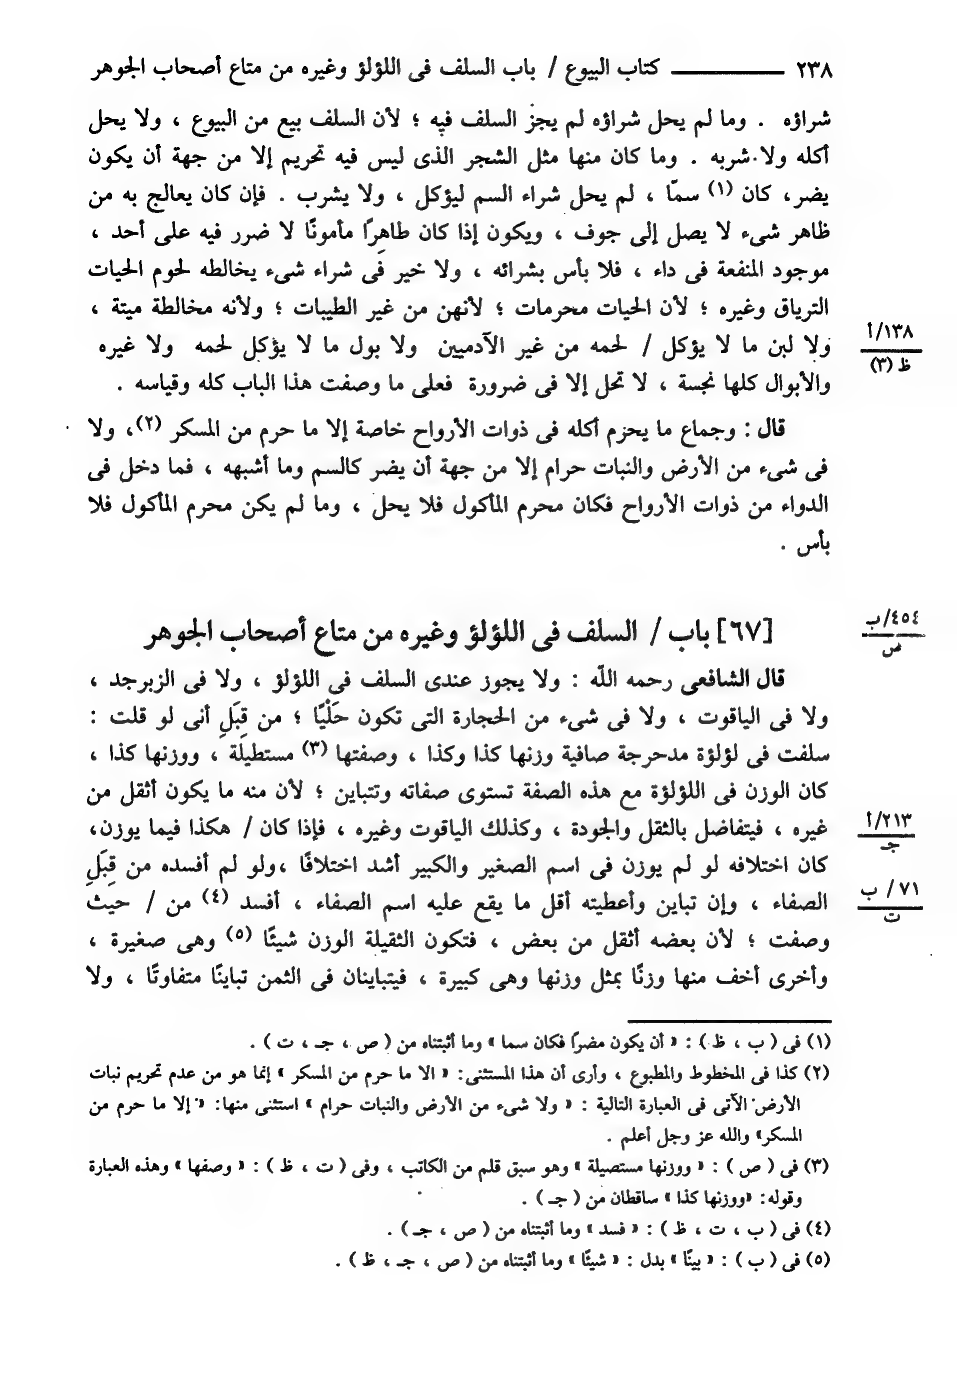 ٢٣٨ ——— كتاب البيوع / باب السلف فى اللؤلؤ وغيره من متاع أصحاب الجوهر
شراؤه . وما لم يحل شراؤه لم يجز السلف فيه ؛ لأن السلف بيع من البيوع ، ولا يحل
أكله ولا شربه . وما كان منها مثل الشجر الذى ليس فيه تحريم إلا من جهة أن يكون
يضر، كان (١) سمًا ، لم يحل شراء السم ليؤكل ، ولا يشرب . فإن كان يعالج به من
ظاهر شىء لا يصل إلى جوف ، ويكون إذا كان طاهِرًا مأمونًا لا ضرر فيه على أحد ،
موجود المنفعة فى داء ، فلا بأس بشرائه ، ولا خير فى شراء شىء يخالطه لحوم الحيات
الترياق وغيره ؛ لأن الحيات محرمات ؛ لأنهن من غير الطيبات ؛ ولأنه مخالطة ميتة ،
ولا لبن ما لا يؤكل / لحمه من غير الآدميين ولا بول ما لا يؤكل لحمه ولا غيره
١٣٨/أ
ظ (٣)
والأبوال كلها نجسة ، لا تحل إلا فى ضرورة فعلى ما وصفت هذا الباب كله وقياسه .
قال : وجماع ما يحرم أكله فى ذوات الأرواح خاصة إلا ما حرم من المسكر (٢)، ولا
فى شىء من الأرض والنبات حرام إلا من جهة أن يضر كالسم وما أشبهه ، فما دخل فى
الدواء من ذوات الأرواح فكان محرم المأكول فلا يحل ، وما لم يكن محرم المأكول فلا
بأس .
[٦٧] باب / السلف فى اللؤلؤ وغيره من متاع أصحاب الجوهر
٤٥٤/ب
ص
قال الشافعى رحمه اللّه : ولا يجوز عندى السلف فى اللؤلؤ ، ولا فى الزبرجد ،
ولا فى الياقوت ، ولا فى شىء من الحجارة التى تكون حَلْيًا ؛ من قِبَلِ أنى لو قلت :
سلفت فى لؤلؤة مدحرجة صافية وزنها كذا وكذا ، وصفتها (٣) مستطيلة ، ووزنها كذا ،
كان الوزن فى اللؤلؤة مع هذه الصفة تستوى صفاته وتتباين ؛ لأن منه ما يكون أثقل من
غيره ، فيتفاضل بالثقل والجودة ، وكذلك الياقوت وغيره ، فإذا كان / هكذا فيما يوزن،
٢١٣/أ
جـ
كان اختلافه لو لم يوزن فى اسم الصغير والكبير أشد اختلافًا ،ولو لم أفسده من قِبَلِ
الصفاء ، وإن تباين وأعطيته أقل ما يقع عليه اسم الصفاء ، أفسد (٤) من / حيث
٧١/ ب
ت
وصفت ؛ لأن بعضه أثقل من بعض ، فتكون الثقيلة الوزن شيئًا (٥) وهى صغيرة ،
وأخرى أخف منها وزنًا بمثل وزنها وهى كبيرة ، فيتباينان فى الثمن تباينًا متفاوتًا ، ولا
(١) فى ( ب ، ظ ) : « أن يكون مضرًا فكان سما » وما أثبتناه من ( ص ، جـ ، ت ) .
(٢) كذا فى المخطوط والمطبوع ، وأرى أن هذا المستثنى: « الا ما حرم من المسكر » إنما هو من عدم تحريم نبات
الأرض الآتى فى العبارة التالية : « ولا شىء من الأرض والنبات حرام » استثنى منها: « إلا ما حرم من
المسكر» والله عز وجل أعلم .
(٣) فى ( ص ) : « ووزنها مستصيلة » وهو سبق قلم من الكاتب ، وفى ( ت ، ظ ) : « وصفها » وهذه العبارة
وقوله: «ووزنها كذا » ساقطان من ( جـ ) .
(٤) فى ( ب ، ت ، ظ ) : « فسد » وما أثبتناه من ( ص ، جـ ) .
(٥) فى ( ب ) : « بينًا » بدل : « شيئًا » وما أثبتناه من ( ص ، جـ ، ظ ) .